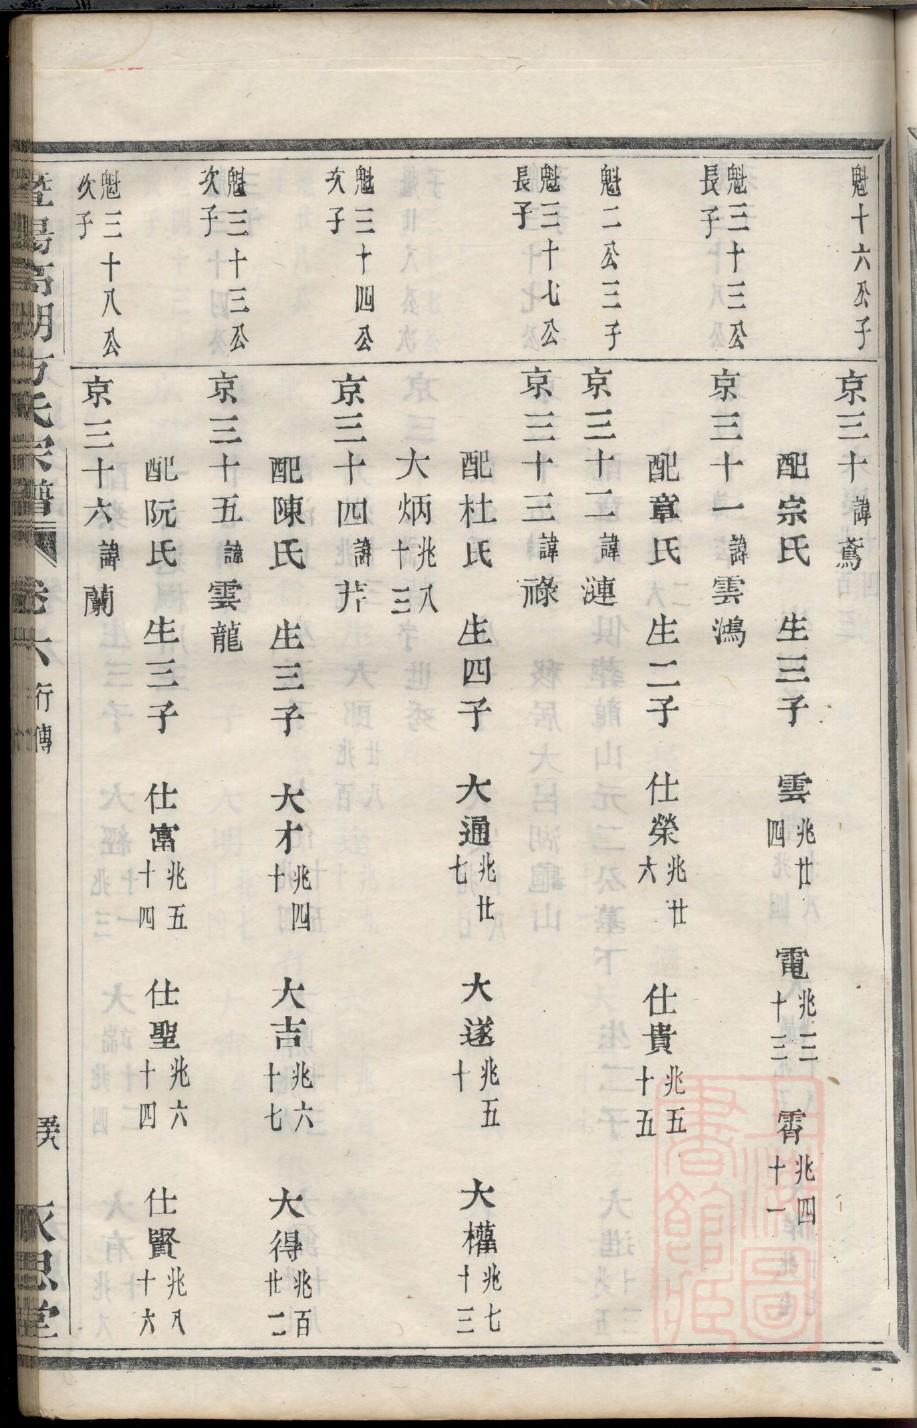 魁十六公子
京三十諱鳶
配宗氏 生三子 雲兆廿四 電兆三十三 霄兆四十一
魁三十三公長子
京三十一諱雲鴻
配章氏 生二子 仕榮兆廿六 仕貴兆五十五
魁二公三子
京三十二諱漣
魁三十七公長子
京三十三諱祿
配杜氏 生四子 大通兆廿七 大遂兆五十 大權兆七十三
大炳兆八十三
魁三十四公次子
京三十四諱芹
配陳氏 生三子 大才兆四十 大吉兆六十七 大得兆百廿二
魁三十三公次子
京三十五諱雲龍
配阮氏 生三子 仕富兆五十四 仕聖兆六十四 仕賢兆八十六
魁三十八公次子
京三十六諱蘭
暨陽高湖方氏宗譜 卷六 行傳 永思堂